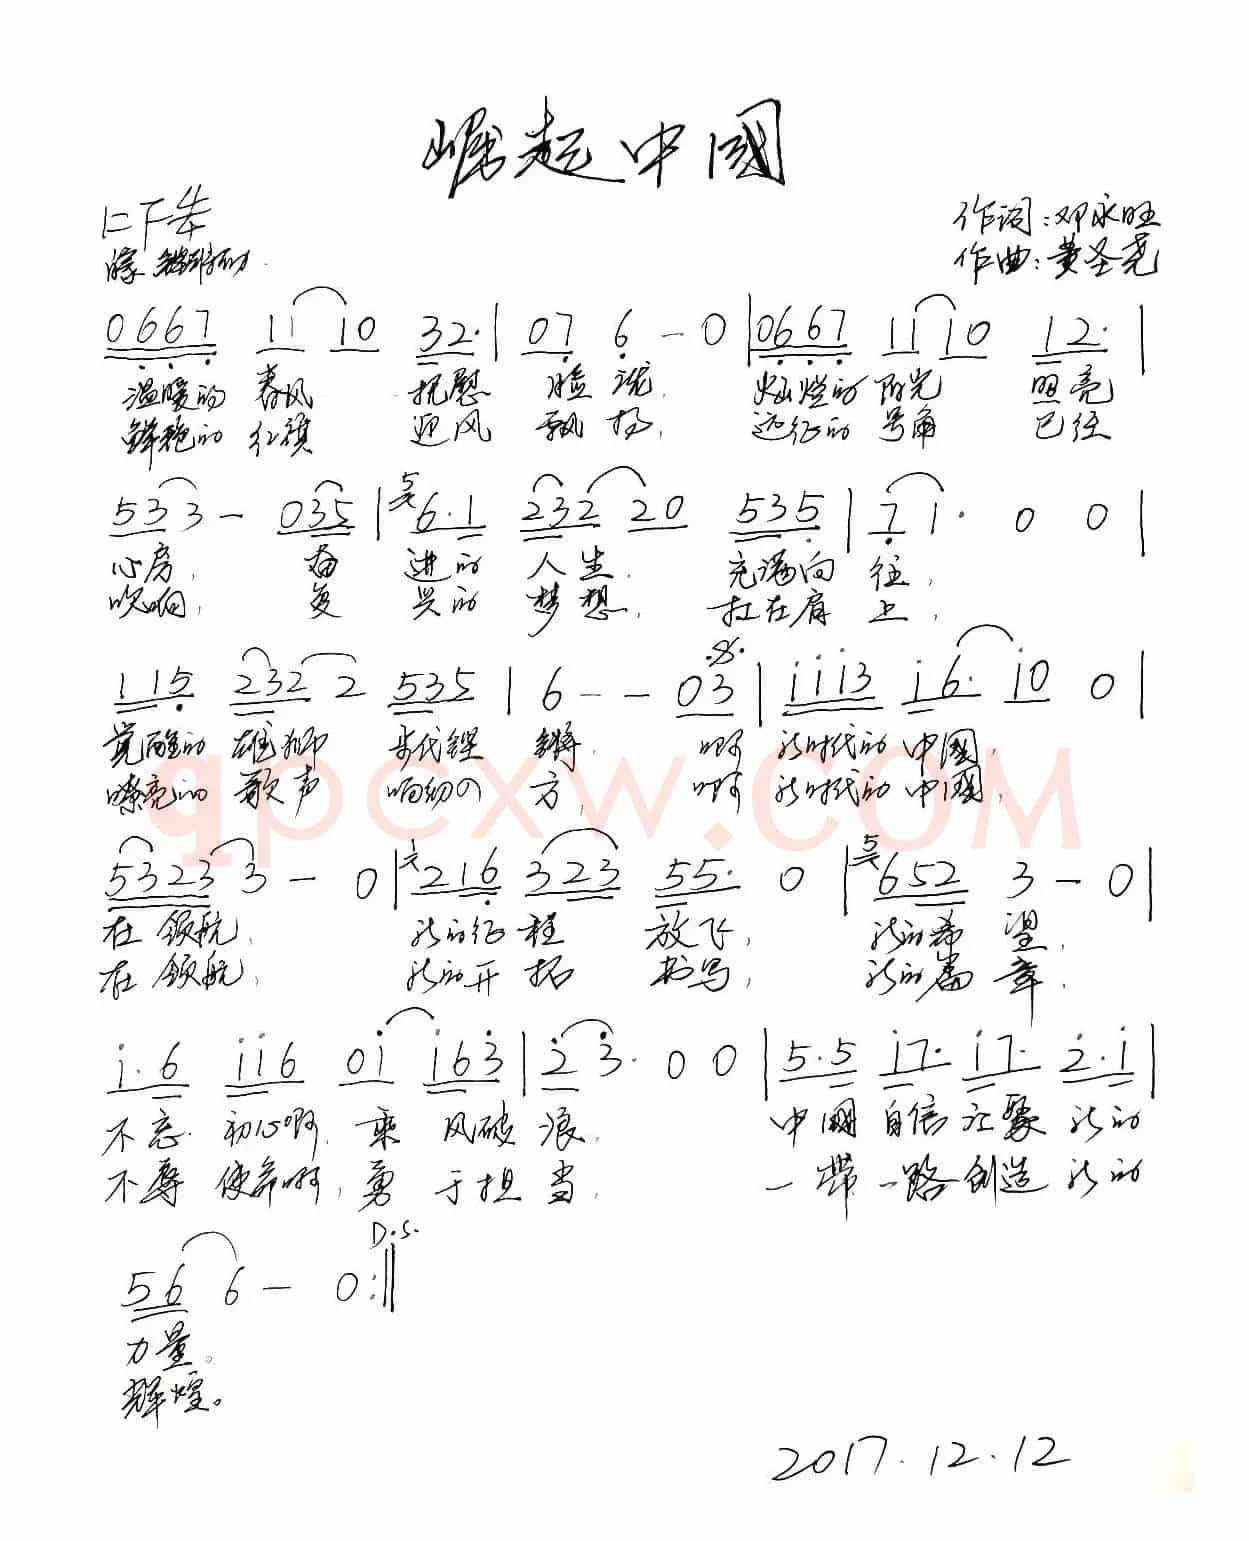 崛起中國
1=F 4/4
作词:邓永旺
作曲:黄圣尧
0667 11 10 32· | 07 6 - 0 | 0667 11 10 12· |
温暖的 春风 抚慰 脸庞, 灿烂的 阳光 照亮
鲜艳的 红旗 迎风 飘扬, 远征的 号角 已经
533 - 035 | 6·1 232 20 535 | 71· 0 0 |
心房, 奋 进的 人生 充满向 往,
吹响, 复 兴的 梦想, 扛在肩 上,
115 232 2 535 | 6 - - 03 | 1113 16· 10 0 |
觉醒的 雄狮 步伐铿 锵, 啊 新时代的 中国,
嘹亮的 歌声 响彻四 方, 啊 新时代的 中国,
5323 3 - 0 | 216 323 55· 0 | 652 3 - 0 |
在 领航, 新的征 程 放飞, 新的希 望,
在 领航, 新的开 拓 书写, 新的篇 章,
1·6 116 01 163 | 2 3· 0 0 | 5·5 17· 17· 2·1 |
不忘 初心啊, 乘 风破 浪, 中国 自信 汇聚 新的
不辱 使命啊, 勇 于担 当, 一带 一路 创造 新的
D.S.
56 6 - 0 :||
力量。
辉煌。
2017.12.12
qpcxw.COM